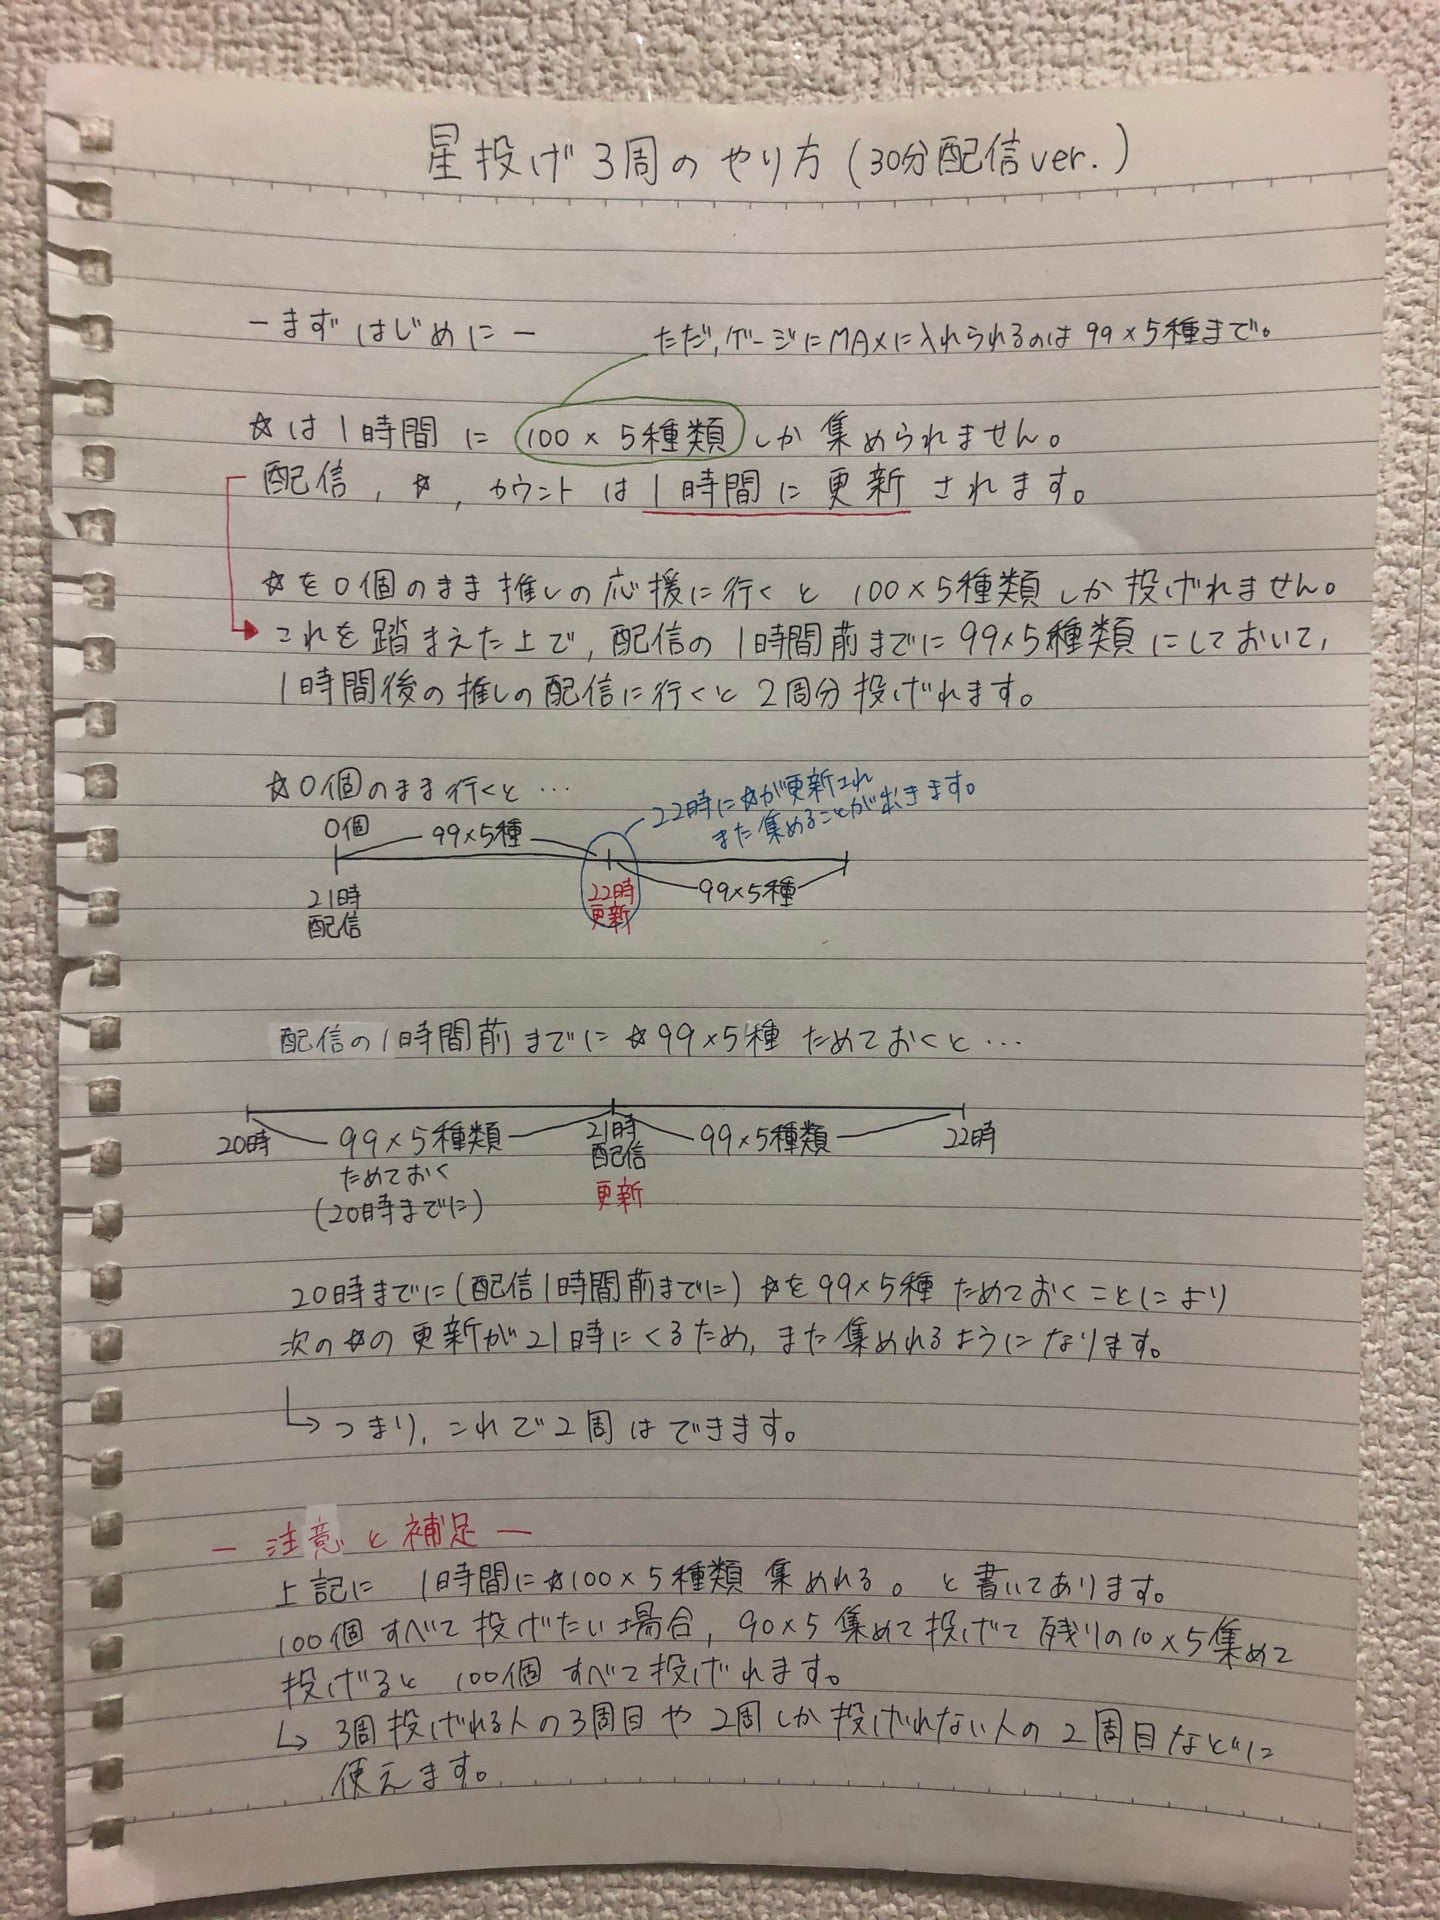 星投げ3周のやり方(30分配信ver.)
－まずはじめに－
ただ,ゲージにMAXに入れられるのは99×5種まで。
☆は1時間に100×5種類しか集められません。
配信,☆,カウントは1時間に更新されます。
☆を0個のまま推しの応援に行くと100×5種類しか投げれません。
これを踏まえた上で,配信の1時間前までに99×5種類にしておいて,
1時間後の推しの配信に行くと2周分投げれます。
☆0個のまま行くと…
22時に☆が更新され
また集めることが出きます。
0個
99×5種
21時
配信
22時
更新
99×5種
配信の1時間前までに☆99×5種ためておくと…
20時
99×5種類
ためておく
(20時までに)
21時
配信
更新
99×5種類
22時
20時までに(配信1時間前までに)☆を99×5種ためておくことにより
次の☆の更新が21時にくるため,また集めれるようになります。
↳つまり,これで2周はできます。
－注意と補足－
上記に1時間に☆100×5種類集めれる。と書いてあります。
100個すべて投げたい場合,90×5集めて投げて残りの10×5集めて
投げると100個すべて投げれます。
↳3周投げれる人の3周目や2周しか投げれない人の2周目などに
使えます。